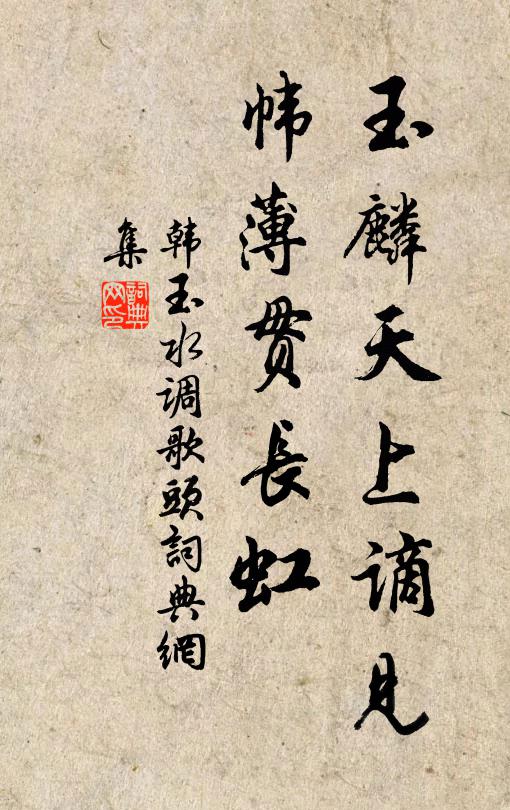 玉麟天上谪见
帏薄贯長虹
韩玉水调歌頭詞典網
集
詞典
网印